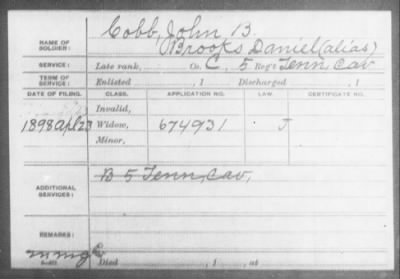 NAME OF SOLDIER: Cobb, John B.
Brooks Daniel (alias)
SERVICE: Late rank, Co. C, 5 Reg't Tenn Cav
TERM OF SERVICE: Enlisted , 1 Discharged , 1
DATE OF FILING. CLASS. APPLICATION NO. LAW. CERTIFICATE NO.
Invalid,
1898 Apl 23 Widow, 674931 J
Minor,
ADDITIONAL SERVICES: B 5 Tenn, Cav,
REMARKS:
Died , 1 , at